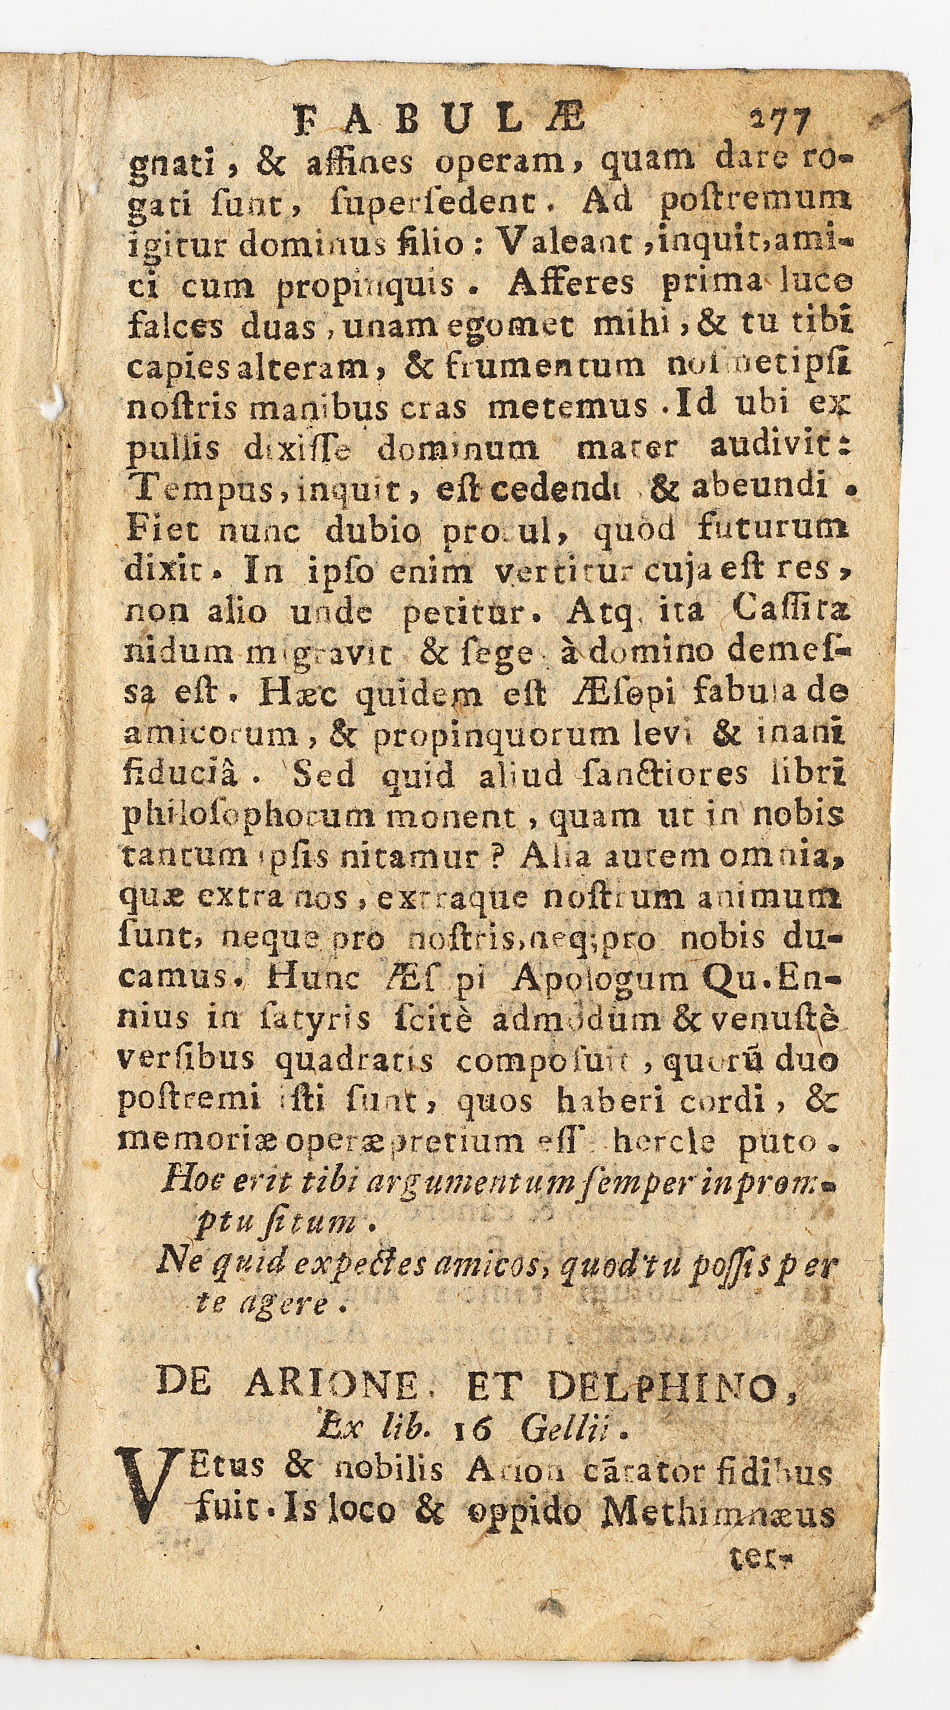 FABULÆ 277
gnati, & affines operam, quam dare ro-
gati ſunt, ſuperſedent. Ad poſtremum
igitur dominus filio: Valeant, inquit, ami-
ci cum propinquis. Afferes prima luce
falces duas, unam egomet mihi, & tu tibi
capies alteram, & frumentum noſmetipſi
noſtris manibus cras metemus. Id ubi ex
pullis dixiſſe dominum mater audivit:
Tempus, inquit, eſt cedendi & abeundi.
Fiet nunc dubio procul, quod futurum
dixit. In ipſo enim vertitur cuja eſt res,
non alio unde petitur. Atq. ita Caſſita
nidum migravit & ſeges à domino demeſ-
sa eſt. Hæc quidem eſt Æſopi fabula de
amicorum, & propinquorum levi & inani
fiduciâ. Sed quid aliud ſanctiores libri
philoſophorum monent, quam ut in nobis
tantum ipſis nitamur? Alia autem omnia,
quæ extra nos, extraque noſtrum animum
ſunt, neque pro noſtris, neq; pro nobis du-
camus. Hunc Æſopi Apologum Qu. En-
nius in ſatyris ſcitè admodum & venuſtè
verſibus quadratis compoſuit, quorū duo
poſtremi iſti ſunt, quos haberi cordi, &
memoriæ operæ pretium eſſe hercle puto.
Hoc erit tibi argumentum ſemper in prom-
ptu ſitum.
Ne quid expectes amicos, quod tu poſſis per
te agere.
DE ARIONE, ET DELPHINO,
Ex lib. 16 Gellii.
VEtus & nobilis Arion cãtator fidibus
fuit. Is loco & oppido Methimnæus
ter-